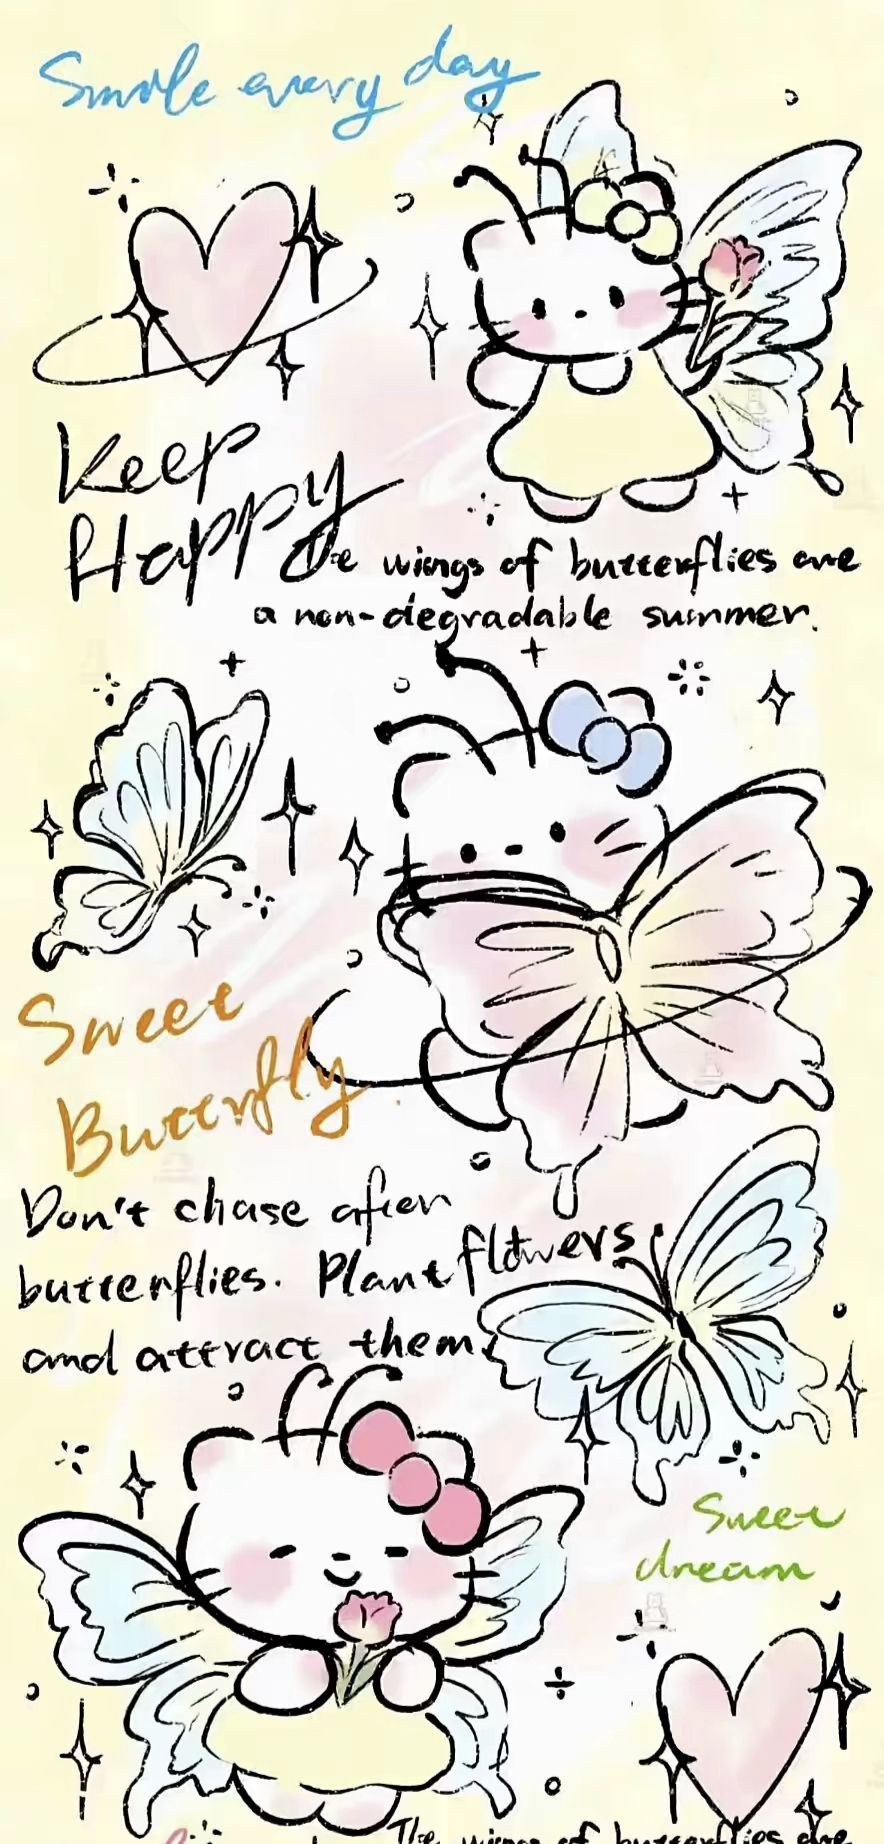 Smile every day
Keep
Happy
The wings of butterflies are
a non-degradable summer.
Sweet
Butterfly.
Don't chase after
butterflies. Plant flowers
and attract them.
Sweet
dream
The wings of butterflies are